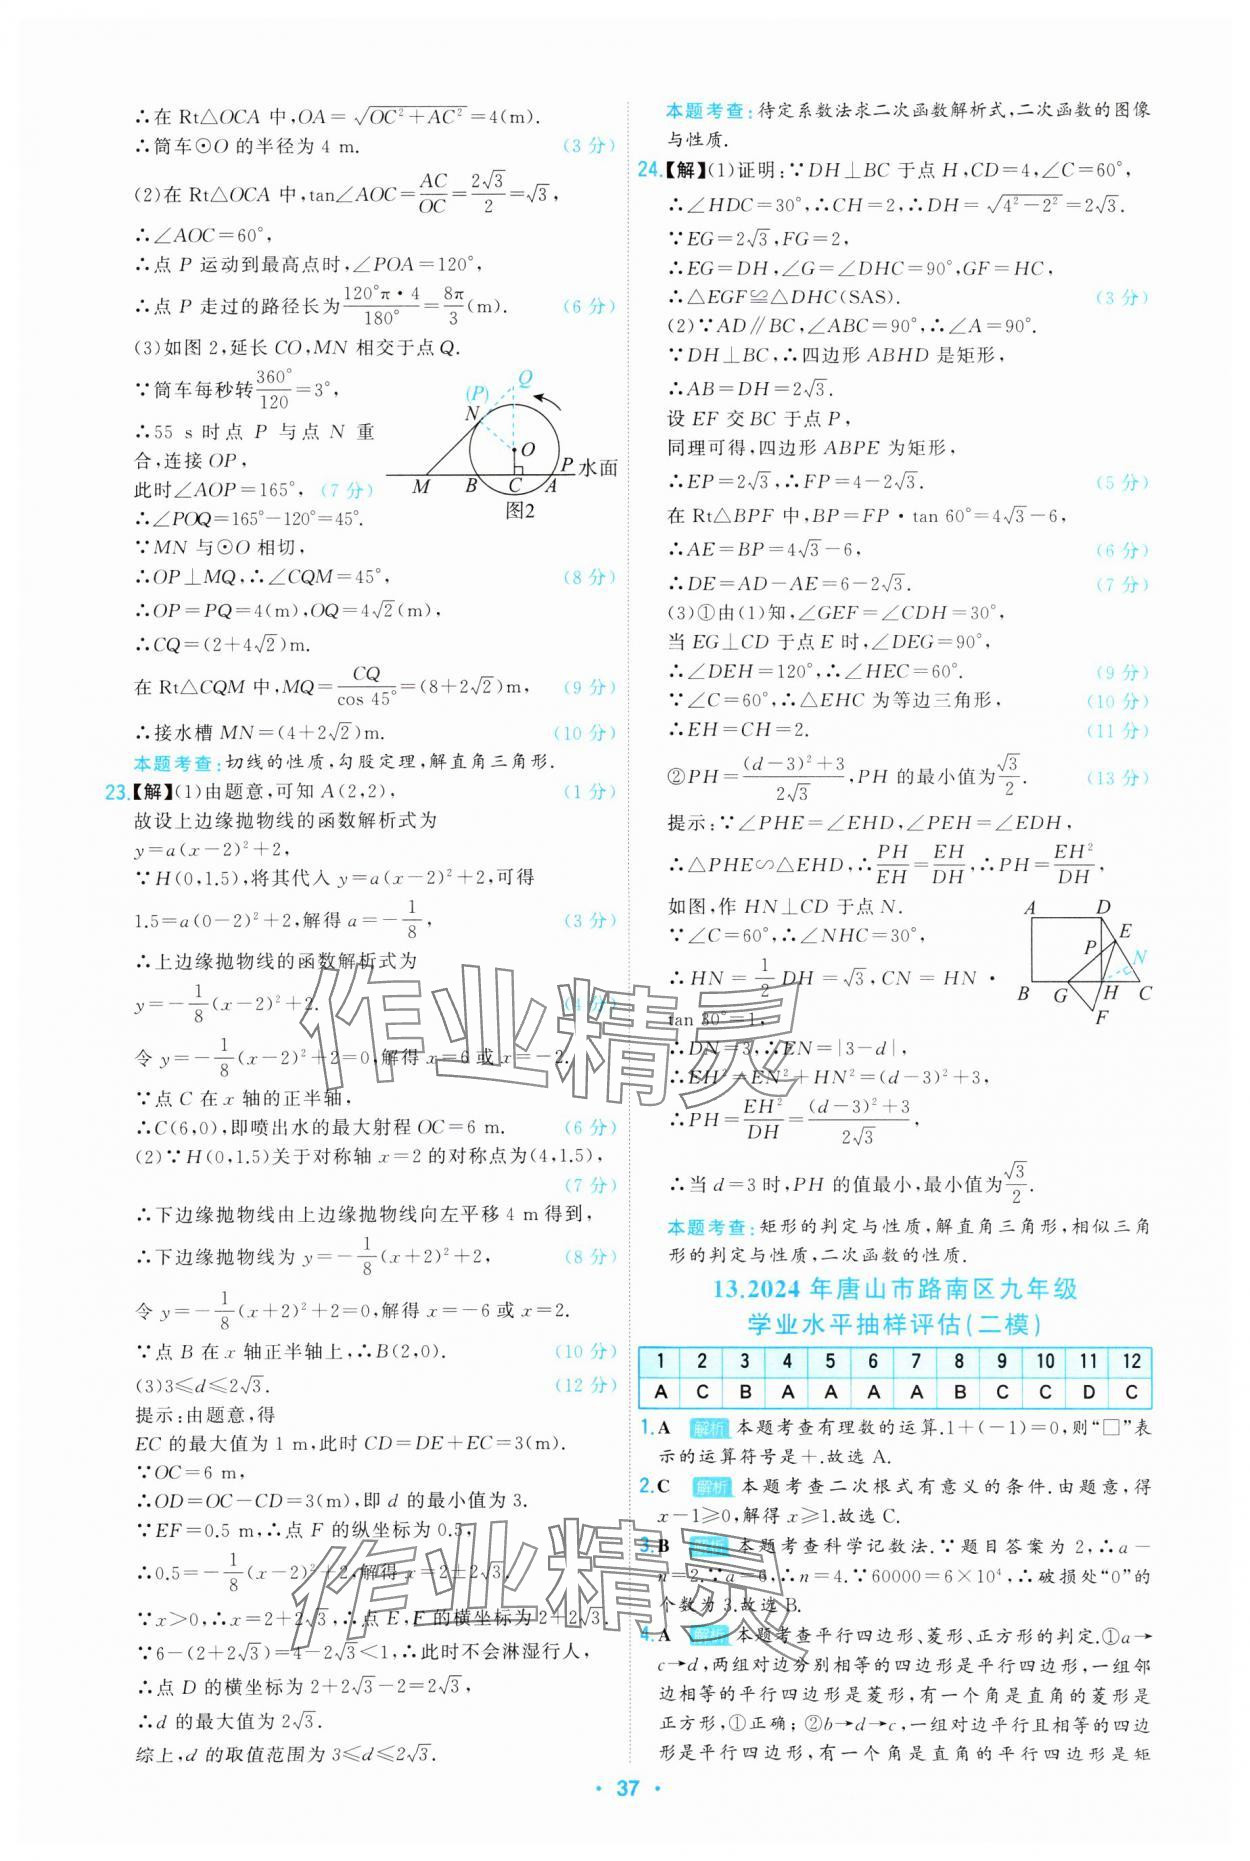 ∴在 Rt△OCA 中,OA=√(OC²+AC²)=4(m).
∴筒车⊙O 的半径为 4 m. (3 分)
(2)在 Rt△OCA 中,tan∠AOC=AC/OC=2√3/2=√3,
∴∠AOC=60°,
∴点 P 运动到最高点时,∠POA=120°,
∴点 P 走过的路径长为120°π·4/180°=8π/3(m). (6 分)
(3)如图 2,延长 CO,MN 相交于点 Q.
∵筒车每秒转360°/120=3°,
∴55 s 时点 P 与点 N 重
合,连接 OP,
此时∠AOP=165°, (7 分)
∴∠POQ=165°-120°=45°.
Q
(P)
N
O
P 水面
M B C A
图2
∵MN 与⊙O 相切,
∴OP⊥MQ,∴∠CQM=45°, (8 分)
∴OP=PQ=4(m),OQ=4√2(m).
∴CQ=(2+4√2)m.
在 Rt△CQM 中,MQ=CQ/cos 45°=(8+2√2)m, (9 分)
∴接水槽 MN=(4+2√2)m. (10 分)
本题考查:切线的性质,勾股定理,解直角三角形.
23.【解】(1)由题意,可知 A(2,2), (1 分)
故设上边缘抛物线的函数解析式为
y=a(x-2)²+2,
∵H(0,1.5),将其代入 y=a(x-2)²+2,可得
1.5=a(0-2)²+2,解得 a=-1/8, (3 分)
∴上边缘抛物线的函数解析式为
y=-1/8(x-2)²+2. (4 分)
令 y=-1/8(x-2)²+2=0,解得 x=6 或 x=-2.
∵点 C 在 x 轴的正半轴,
∴C(6,0),即喷出水的最大射程 OC=6 m. (6 分)
(2)∵H(0,1.5)关于对称轴 x=2 的对称点为(4,1.5),
(7 分)
∴下边缘抛物线由上边缘抛物线向左平移 4 m得到,
∴下边缘抛物线为 y=-1/8(x+2)²+2, (8 分)
令 y=-1/8(x+2)²+2=0,解得 x=-6 或 x=2.
∵点 B 在 x 轴正半轴上,∴B(2,0). (10 分)
(3)3≤d≤2√3. (12 分)
提示:由题意,得
EC 的最大值为 1 m,此时 CD=DE+EC=3(m).
∵OC=6 m,
∴OD=OC-CD=3(m),即 d 的最小值为 3.
∵EF=0.5 m,∴点 F 的纵坐标为 0.5,
∴0.5=-1/8(x-2)²+2,解得 x=2±2√3.
∵x>0,∴x=2+2√3,∴点 E,F 的横坐标为 2+2√3.
∵6-(2+2√3)=4-2√3<1,∴此时不会淋湿行人,
∴点 D 的横坐标为 2+2√3-2=2√3,
∴d 的最大值为 2√3.
综上,d 的取值范围为 3≤d≤2√3.
本题考查:待定系数法求二次函数解析式,二次函数的图像
与性质.
24.【解】(1)证明:∵DH⊥BC 于点 H,CD=4,∠C=60°,
∴∠HDC=30°,∴CH=2,∴DH=√(4²-2²)=2√3.
∵EG=2√3,FG=2,
∴EG=DH,∠G=∠DHC=90°,GF=HC,
∴△EGF≌△DHC(SAS). (3 分)
(2)∵AD∥BC,∠ABC=90°,∴∠A=90°.
∵DH⊥BC,∴四边形 ABHD 是矩形,
∴AB=DH=2√3.
设 EF 交 BC 于点 P,
同理可得,四边形 ABPE 为矩形,
∴EP=2√3,∴FP=4-2√3. (5 分)
在 Rt△BPF 中,BP=FP·tan 60°=4√3-6,
∴AE=BP=4√3-6, (6 分)
∴DE=AD-AE=6-2√3. (7 分)
(3)①由(1)知,∠GEF=∠CDH=30°,
当 EG⊥CD 于点 E 时,∠DEG=90°,
∴∠DEH=120°,∴∠HEC=60°. (9 分)
∵∠C=60°,∴△EHC 为等边三角形, (10 分)
∴EH=CH=2. (11 分)
②PH=((d-3)²+3)/(2√3),PH 的最小值为√3/2. (13 分)
提示:∵∠PHE=∠EHD,∠PEH=∠EDH,
∴△PHE∽△EHD,∴PH/EH=EH/DH,∴PH=EH²/DH,
如图,作 HN⊥CD 于点 N.
∵∠C=60°,∴∠NHC=30°,
∴HN=1/2DH=√3,CN=HN·
tan 30°=1,
A D
E
P
N
B G H C
F
∴DN=3,∴EN=|3-d|,
∴EH²=EN²+HN²=(d-3)²+3,
∴PH=EH²/DH=((d-3)²+3)/(2√3),
∴当 d=3 时,PH 的值最小,最小值为√3/2.
本题考查:矩形的判定与性质,解直角三角形,相似三角
形的判定与性质,二次函数的性质.
13.2024 年唐山市路南区九年级
学业水平抽样评估(二模)
1 2 3 4 5 6 7 8 9 10 11 12
A C B A A A A B C C D C
1.A 解析 本题考查有理数的运算.1+(-1)=0,则“□”表
示的运算符号是+.故选 A.
2.C 解析 本题考查二次根式有意义的条件.由题意,得
x-1≥0,解得 x≥1.故选 C.
3.B 解析 本题考查科学记数法.∵题目答案为 2,∴a-
n=2.∵a=6,∴n=4.∵60000=6×10⁴,∴破损处“0”的
个数为 3.故选 B.
4.A 解析 本题考查平行四边形、菱形、正方形的判定.①a→
c→d,两组对边分别相等的四边形是平行四边形,一组邻
边相等的平行四边形是菱形,有一个角是直角的菱形是
正方形,①正确;②b→d→c,一组对边平行且相等的四边
形是平行四边形,有一个角是直角的平行四边形是矩
· 37 ·
作业精灵
作业精灵